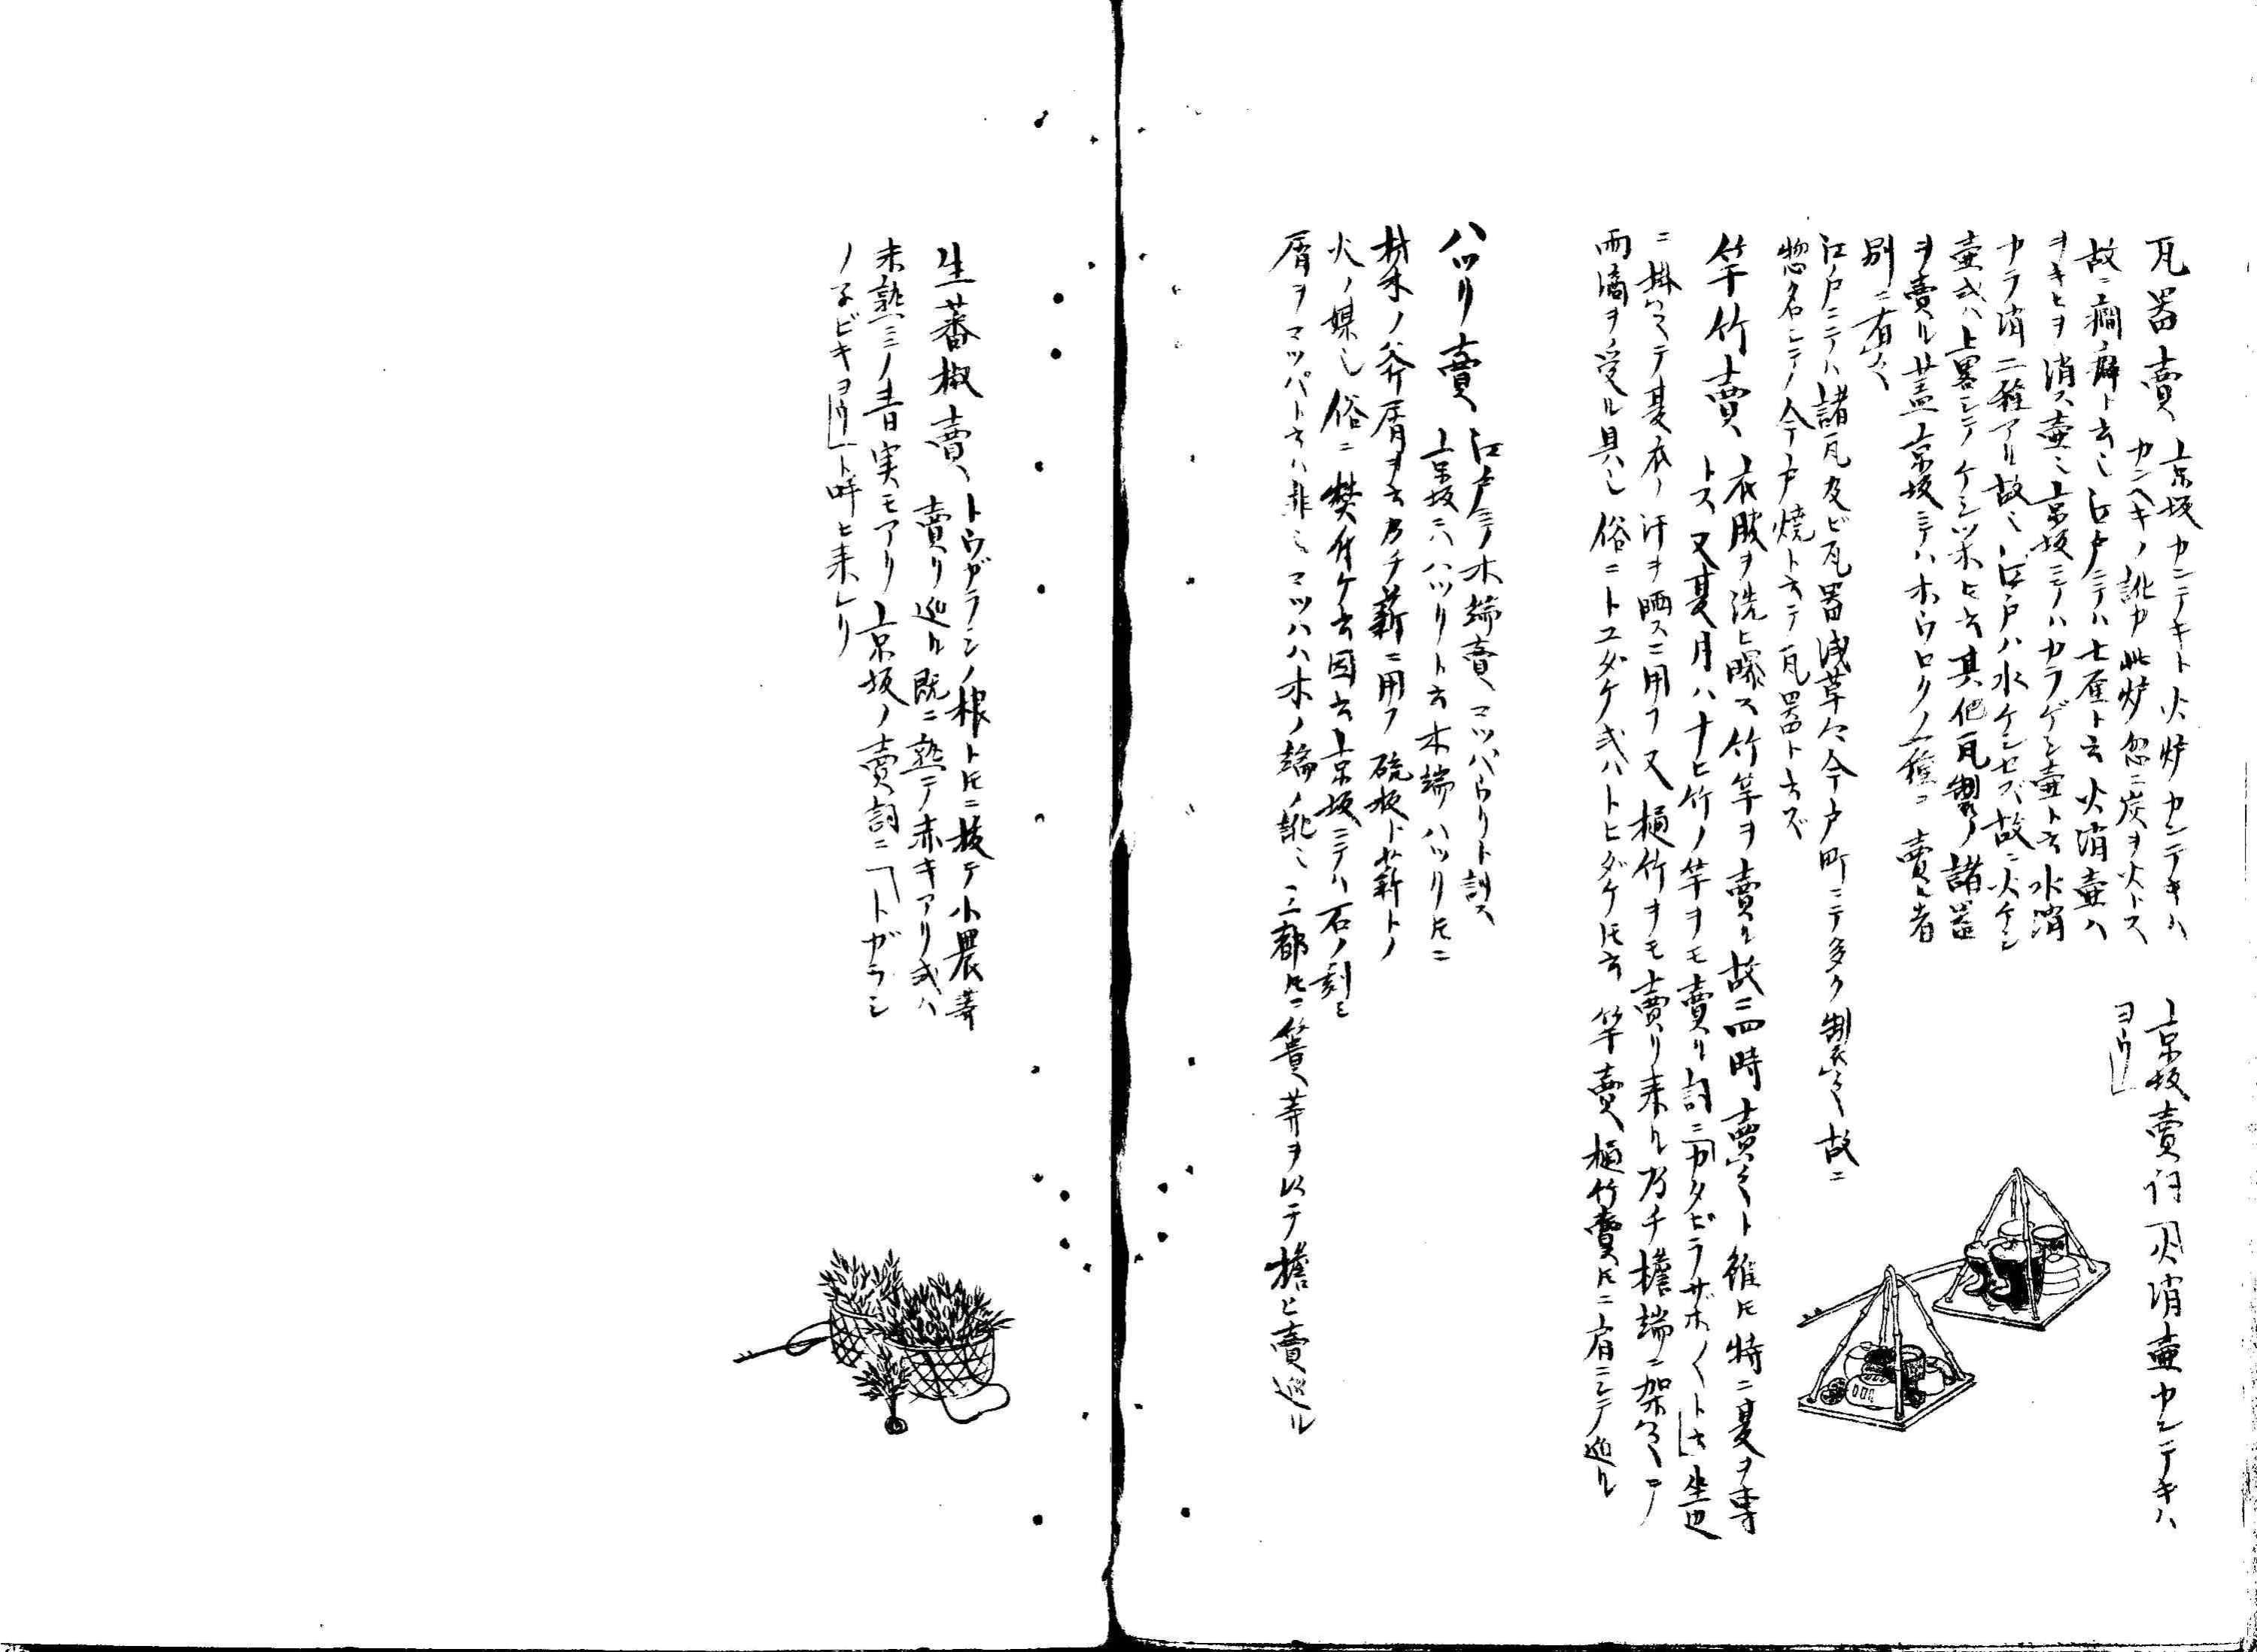 瓦器賣 京坂カンテキト火炉カンテキハ
カンヘキノ訛カ此炉忽ニ炭ヲ火トス
故ニ癇癖ト云ミ江戸ニテハ七厘ト云火消壷ハ
ヲキヒヲ消ス壷ミ京坂ニテハカラゲシ壷ト云水消
カラ消二種アリ故ミ江戸ハ水ケシセズ故ニ火ケシ
壷或ハ上畧シテケシツホトモ云其他瓦製ノ諸器
ヲ賣ル蓋京坂ニテハホウロクノ一種ヲ賣ル者
別ニ有之
京坂賣詞「火消壷カンテキハ
ヨウ」
江戸ニテハ諸瓦及ビ瓦器浅草今戸町ニテ多ク製之故ニ
惣名シテ今戸焼ト云テ瓦器ト云ズ
竿竹賣 衣服ヲ洗ヒ曝ス竹竿ヲ賣ル故ニ四時賣之ト雖ドモ特ニ夏ヲ専
トス又夏月ハ十ヒ竹ノ竿ヲモ賣リ詞ニ「カタビラザホ〱ト」云
ニ掛之テ夏衣ノ汗ヲ晒スニ用フ又樋竹ヲモ賣リ来ル乃チ檐端ニ架之テ
雨滴ヲ受ル具也俗ニトユダケ或ハトヒダケトモ云 竿賣樋竹賣トモニ肩ニシテ巡ル
ハツリ賣 江戸ニテ木端賣コツパウリト訓ス
京坂ニハハツリト云木端ハツリトモニ
材木ノ斧屑ヲ云乃チ薪ニ用フ硫板ト薪トノ
火ノ媒也俗ニ焚付ケ云因云京坂ニテハ石ノ刻ミ
屑ヲコツパト云ハ非ミコツハハ木ノ端ノ訛ミ三都トモニ簀等ヲ以テ擔ヒ賣巡ル
生蕃椒賣 トウガラシノ根トモニ抜テ小農等
賣リ巡ル既ニ熟テ赤キアリ或ハ
未熟ミノ青実モアリ京坂ノ賣詞ニ「トガラシ
ノ子ビキヨウ」ト呼ヒ来レリ